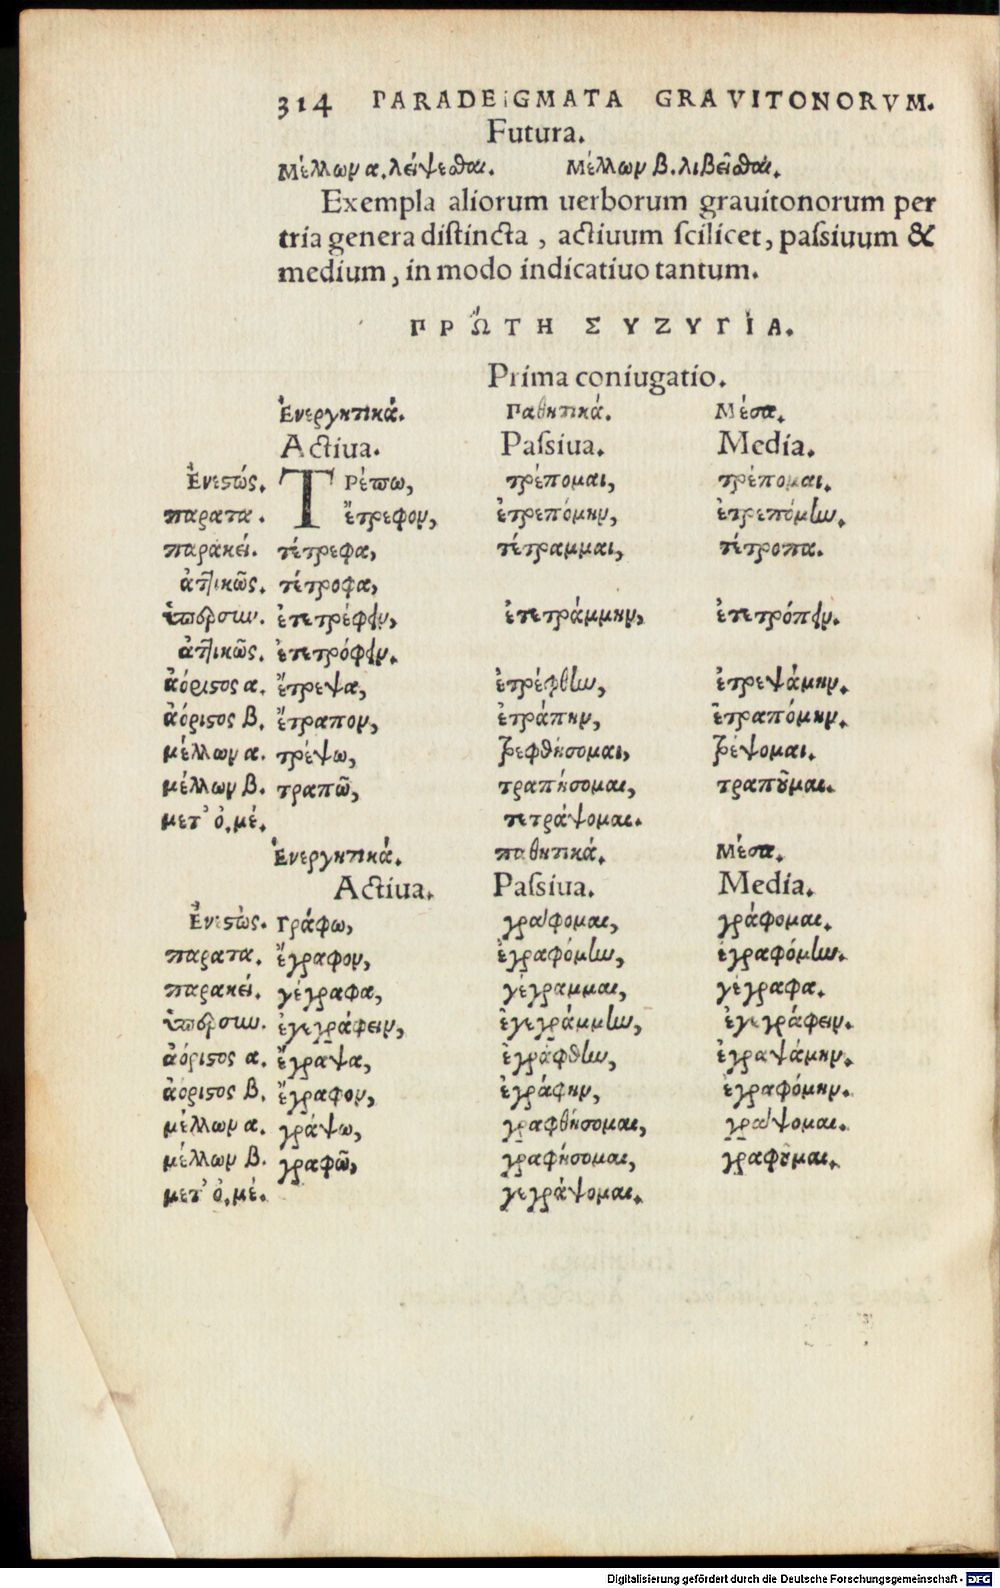 314 PARADEIGMATA GRAVITONORVM.
Futura.
Μέλλων α. λείψεσθαι. Μέλλων β. λιβεῖσθαι.
Exempla aliorum uerborum grauitonorum per
tria genera distincta, actiuum scilicet, passiuum &
medium, in modo indicatiuo tantum.
ΠΡὬΤΗ ΣΥΖΥΓΊΑ.
Prima coniugatio.
Ἐνεργητικά. Παθητικά. Μέσα.
Actiua. Passiua. Media.
Ἐνεστώς. ΤΡέπω, τρέπομαι, τρέπομαι.
παρατα. ἔτρεφον, ἐτρεπόμην, ἐτρεπόμην.
παρακεί. τέτρεφα, τέτραμμαι, τέτροπα.
ἀττικῶς. τέτροφα,
ὑπερσυν. ἐτετρέφειν, ἐτετράμμην, ἐτετρόπειν.
ἀττικῶς. ἐτετρόφειν.
ἀόριστος α. ἔτρεψα, ἐτρέφθην, ἐτρεψάμην.
ἀόριστος β. ἔτραπον, ἐτράπην, ἐτραπόμην.
μέλλων α. τρέψω, τρεφθήσομαι, τρέψομαι.
μέλλων β. τραπῶ, τραπήσομαι, τραποῦμαι.
μετ' ὀ. μέ. τετράψομαι.
Ἐνεργητικά. παθητικά. Μέσα.
Actiua. Passiua. Media.
Ἐνεστώς. Γράφω, γράφομαι, γράφομαι.
παρατα. ἔγραφον, ἐγραφόμην, ἐγραφόμην.
παρακεί. γέγραφα, γέγραμμαι, γέγραφα.
ὑπερσυν. ἐγεγράφειν, ἐγεγράμμην, ἐγεγράφειν.
ἀόριστος α. ἔγραψα, ἐγράφθην, ἐγραψάμην.
ἀόριστος β. ἔγραφον, ἐγράφην, ἐγραφόμην.
μέλλων α. γράψω, γραφθήσομαι, γράψομαι.
μέλλων β. γραφῶ, γραφήσομαι, γραφοῦμαι.
μετ' ὀ. μέ. γεγράψομαι.
Digitalisierung gefördert durch die Deutsche Forschungsgemeinschaft - DFG